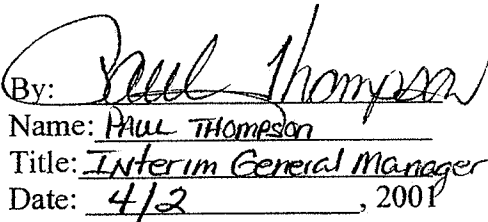 By: Paul Thompson
Name: PAUL THOMPSON
Title: Interim General Manager
Date: 4/2, 2001